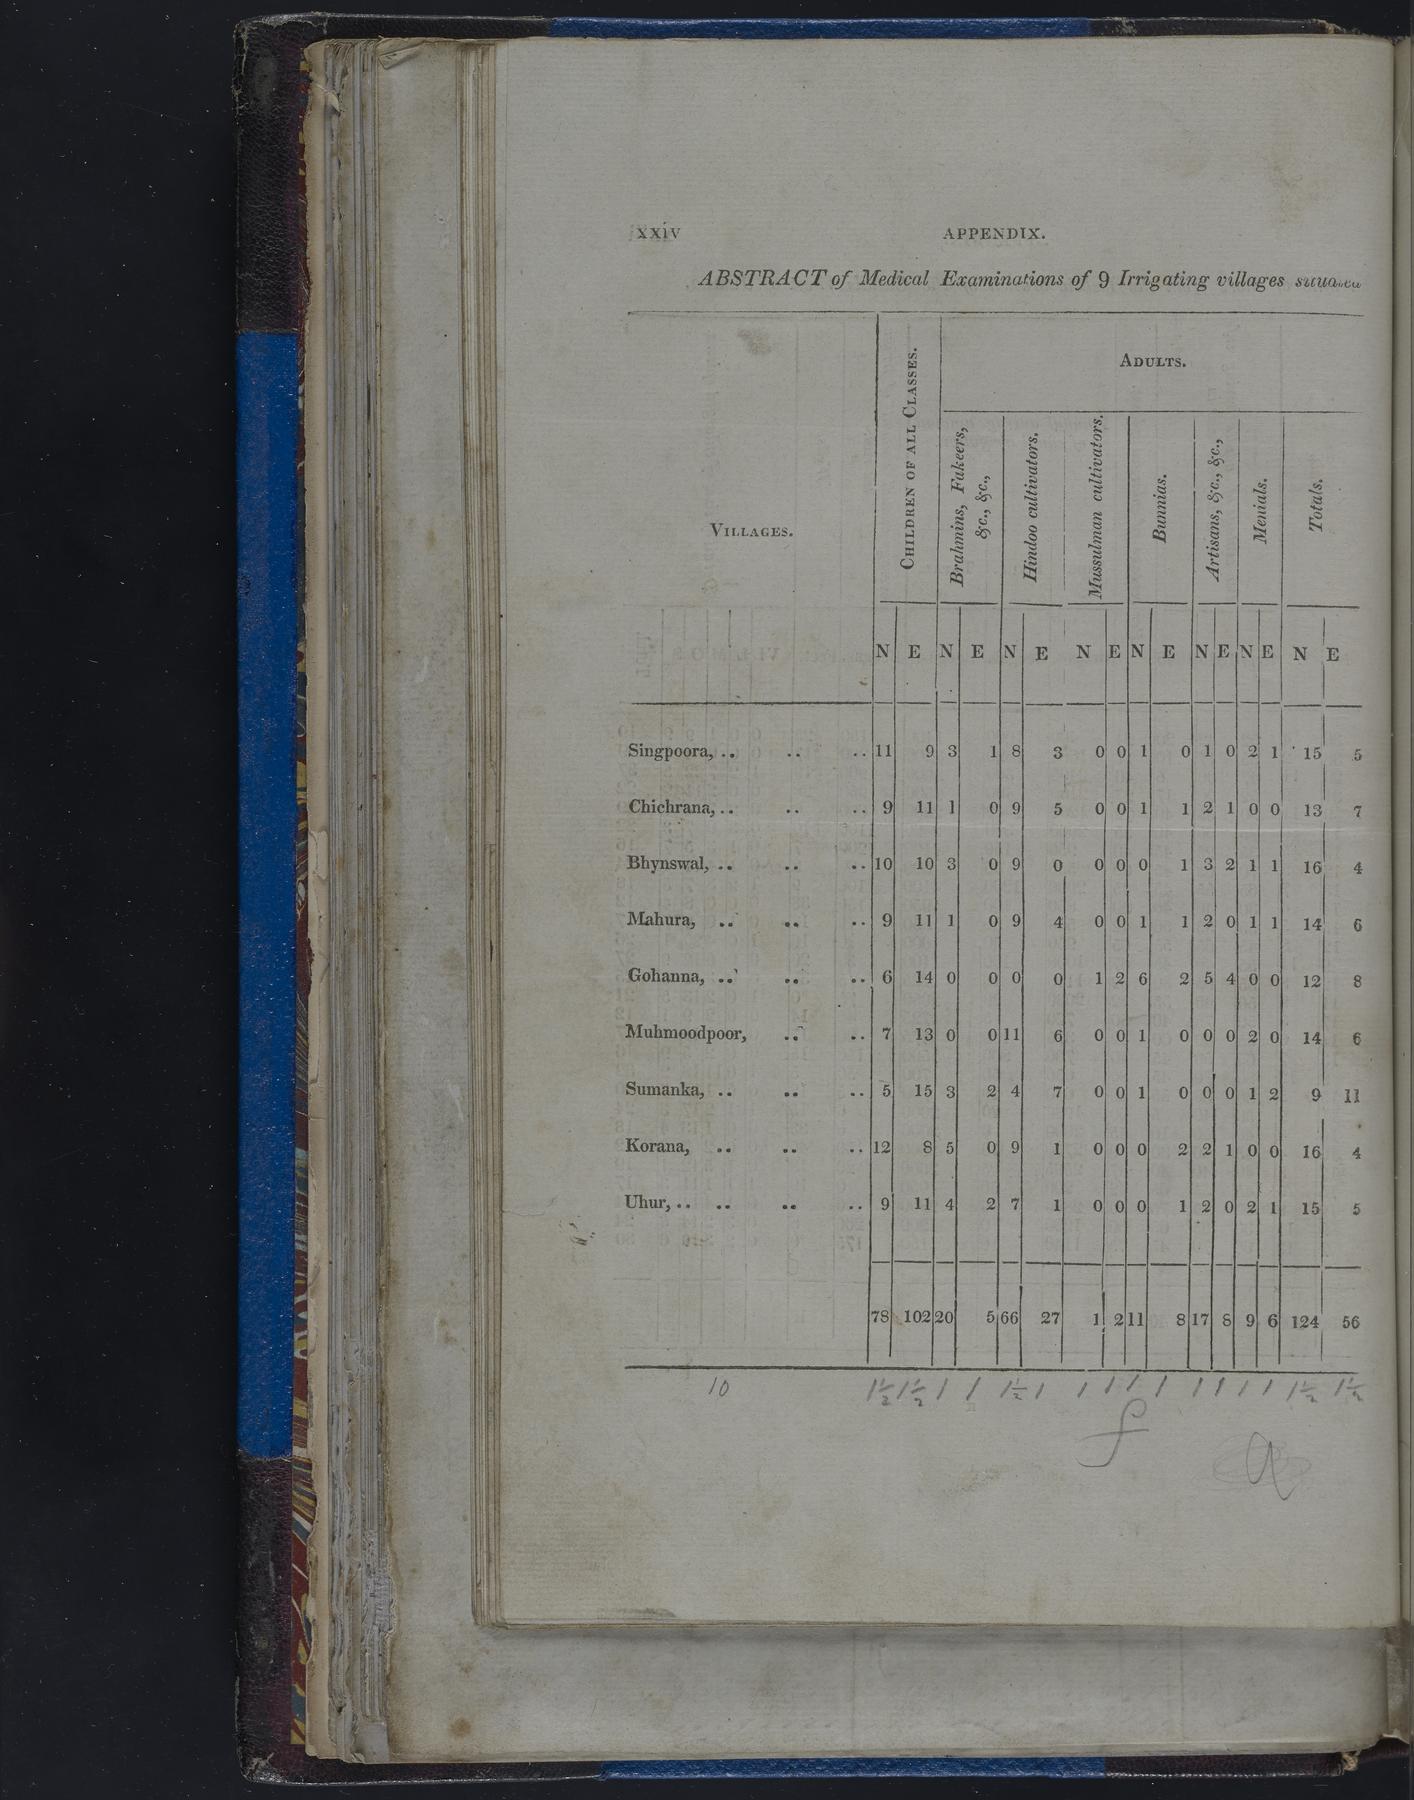 xxiv APPENDIX.
ABSTRACT of Medical Examinations of 9 Irrigating villages situated
VILLAGES.
CHILDREN OF ALL CLASSES.
ADULTS.
Brahmins, Fakeers, &c., &c.,
Hindoo cultivators.
Mussulman cultivators.
Bunnias.
Artisans, &c., &c.,
Menials.
Totals.
N E N E N E N E N E N E N E N E
Singpoora, .. .. .. 11 9 3 1 8 3 0 0 1 0 1 0 2 1 15 5
Chichrana, .. .. .. 9 11 1 0 9 5 0 0 1 1 2 1 0 0 13 7
Bhynswal, .. .. .. 10 10 3 0 9 0 0 0 0 1 3 2 1 1 16 4
Mahura, .. .. .. 9 11 1 0 9 4 0 0 1 1 2 0 1 1 14 6
Gohanna, .. .. .. 6 14 0 0 0 0 1 2 6 2 5 4 0 0 12 8
Muhmoodpoor, .. .. 7 13 0 0 11 6 0 0 1 0 0 0 2 0 14 6
Sumanka, .. .. .. 5 15 3 2 4 7 0 0 1 0 0 0 1 2 9 11
Korana, .. .. .. 12 8 5 0 9 1 0 0 0 2 2 1 0 0 16 4
Uhur, .. .. .. .. 9 11 4 2 7 1 0 0 0 1 2 0 2 1 15 5
78 102 20 5 66 27 1 2 11 8 17 8 9 6 124 56
10 1½ 1½ 1 1 1½ 1 1 1 1 1 1 1 1 1 1½ 1½